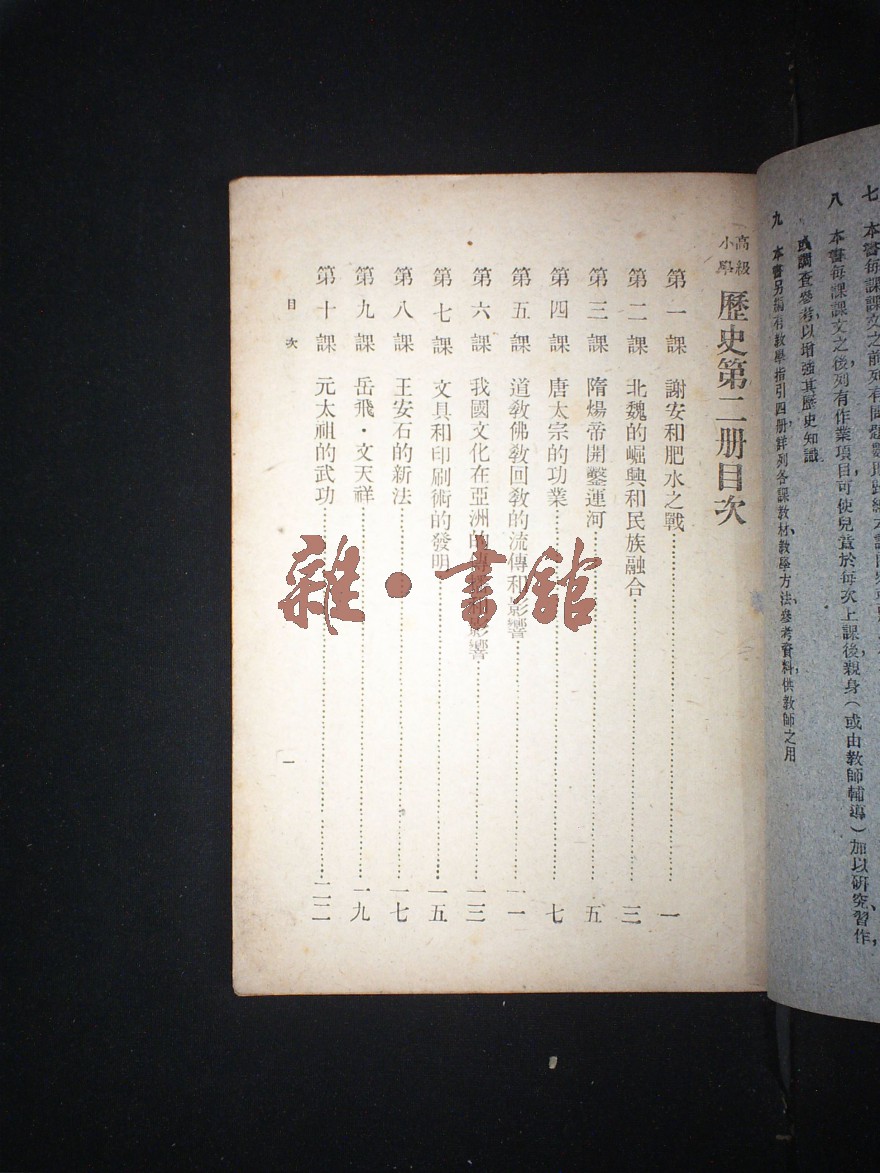 七　本書每課課文之前列有問題
八　本書每課課文之後列有作業項目，可使兒童於每次上課後親身（或由教師輔導）加以研究、習作，
或調查參考，以增強其歷史知識
九　本書另編有教學指引四册，詳列各課教材、教學方法、參考資料，供教師之用
高級小學　歷史第二册目次
第一課　謝安和肥水之戰……………一
第二課　北魏的崛興和民族融合……………三
第三課　隋煬帝開鑿運河……………五
第四課　唐太宗的功業……………七
第五課　道教佛教回教的流傳和影響……………一一
第六課　我國文化在亞洲的傳播和影響……………一三
第七課　文具和印刷術的發明……………一五
第八課　王安石的新法……………一七
第九課　岳飛·文天祥……………一九
第十課　元太祖的武功……………二二
目次　一
雜·書館